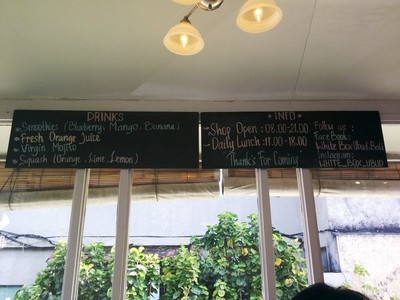 DRINKS
Smoothies (Blueberry, Mango, Banana)
Fresh Orange Juice
Virgin Mojito
Squash (Orange, Lime, Lemon)
INFO
Shop Open : 08.00-21.00
Daily Lunch : 11.00 - 18.00
Thank's For Coming
Follow us :
Face Book :
White Box Ubud, Bali
Instagram :
WHITE_BOX_UBUD